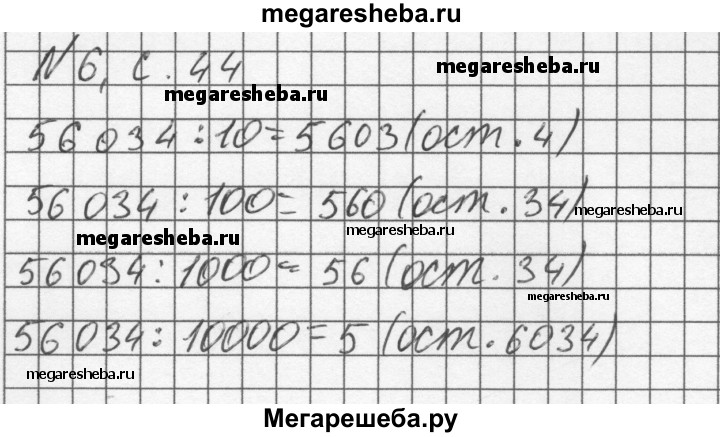 megaresheba.ru
N 6, с. 44
megaresheba.ru
megaresheba.ru
56 034 : 10 = 5603 (ост. 4)
56 034 : 100 = 560 (ост. 34)
megaresheba.ru
megaresheba.ru
megaresheba.ru
56 034 : 1000 = 56 (ост. 34)
megaresheba.ru
56 034 : 10000 = 5 (ост. 6034)
megaresheba.ru
Мегарешеба.ру